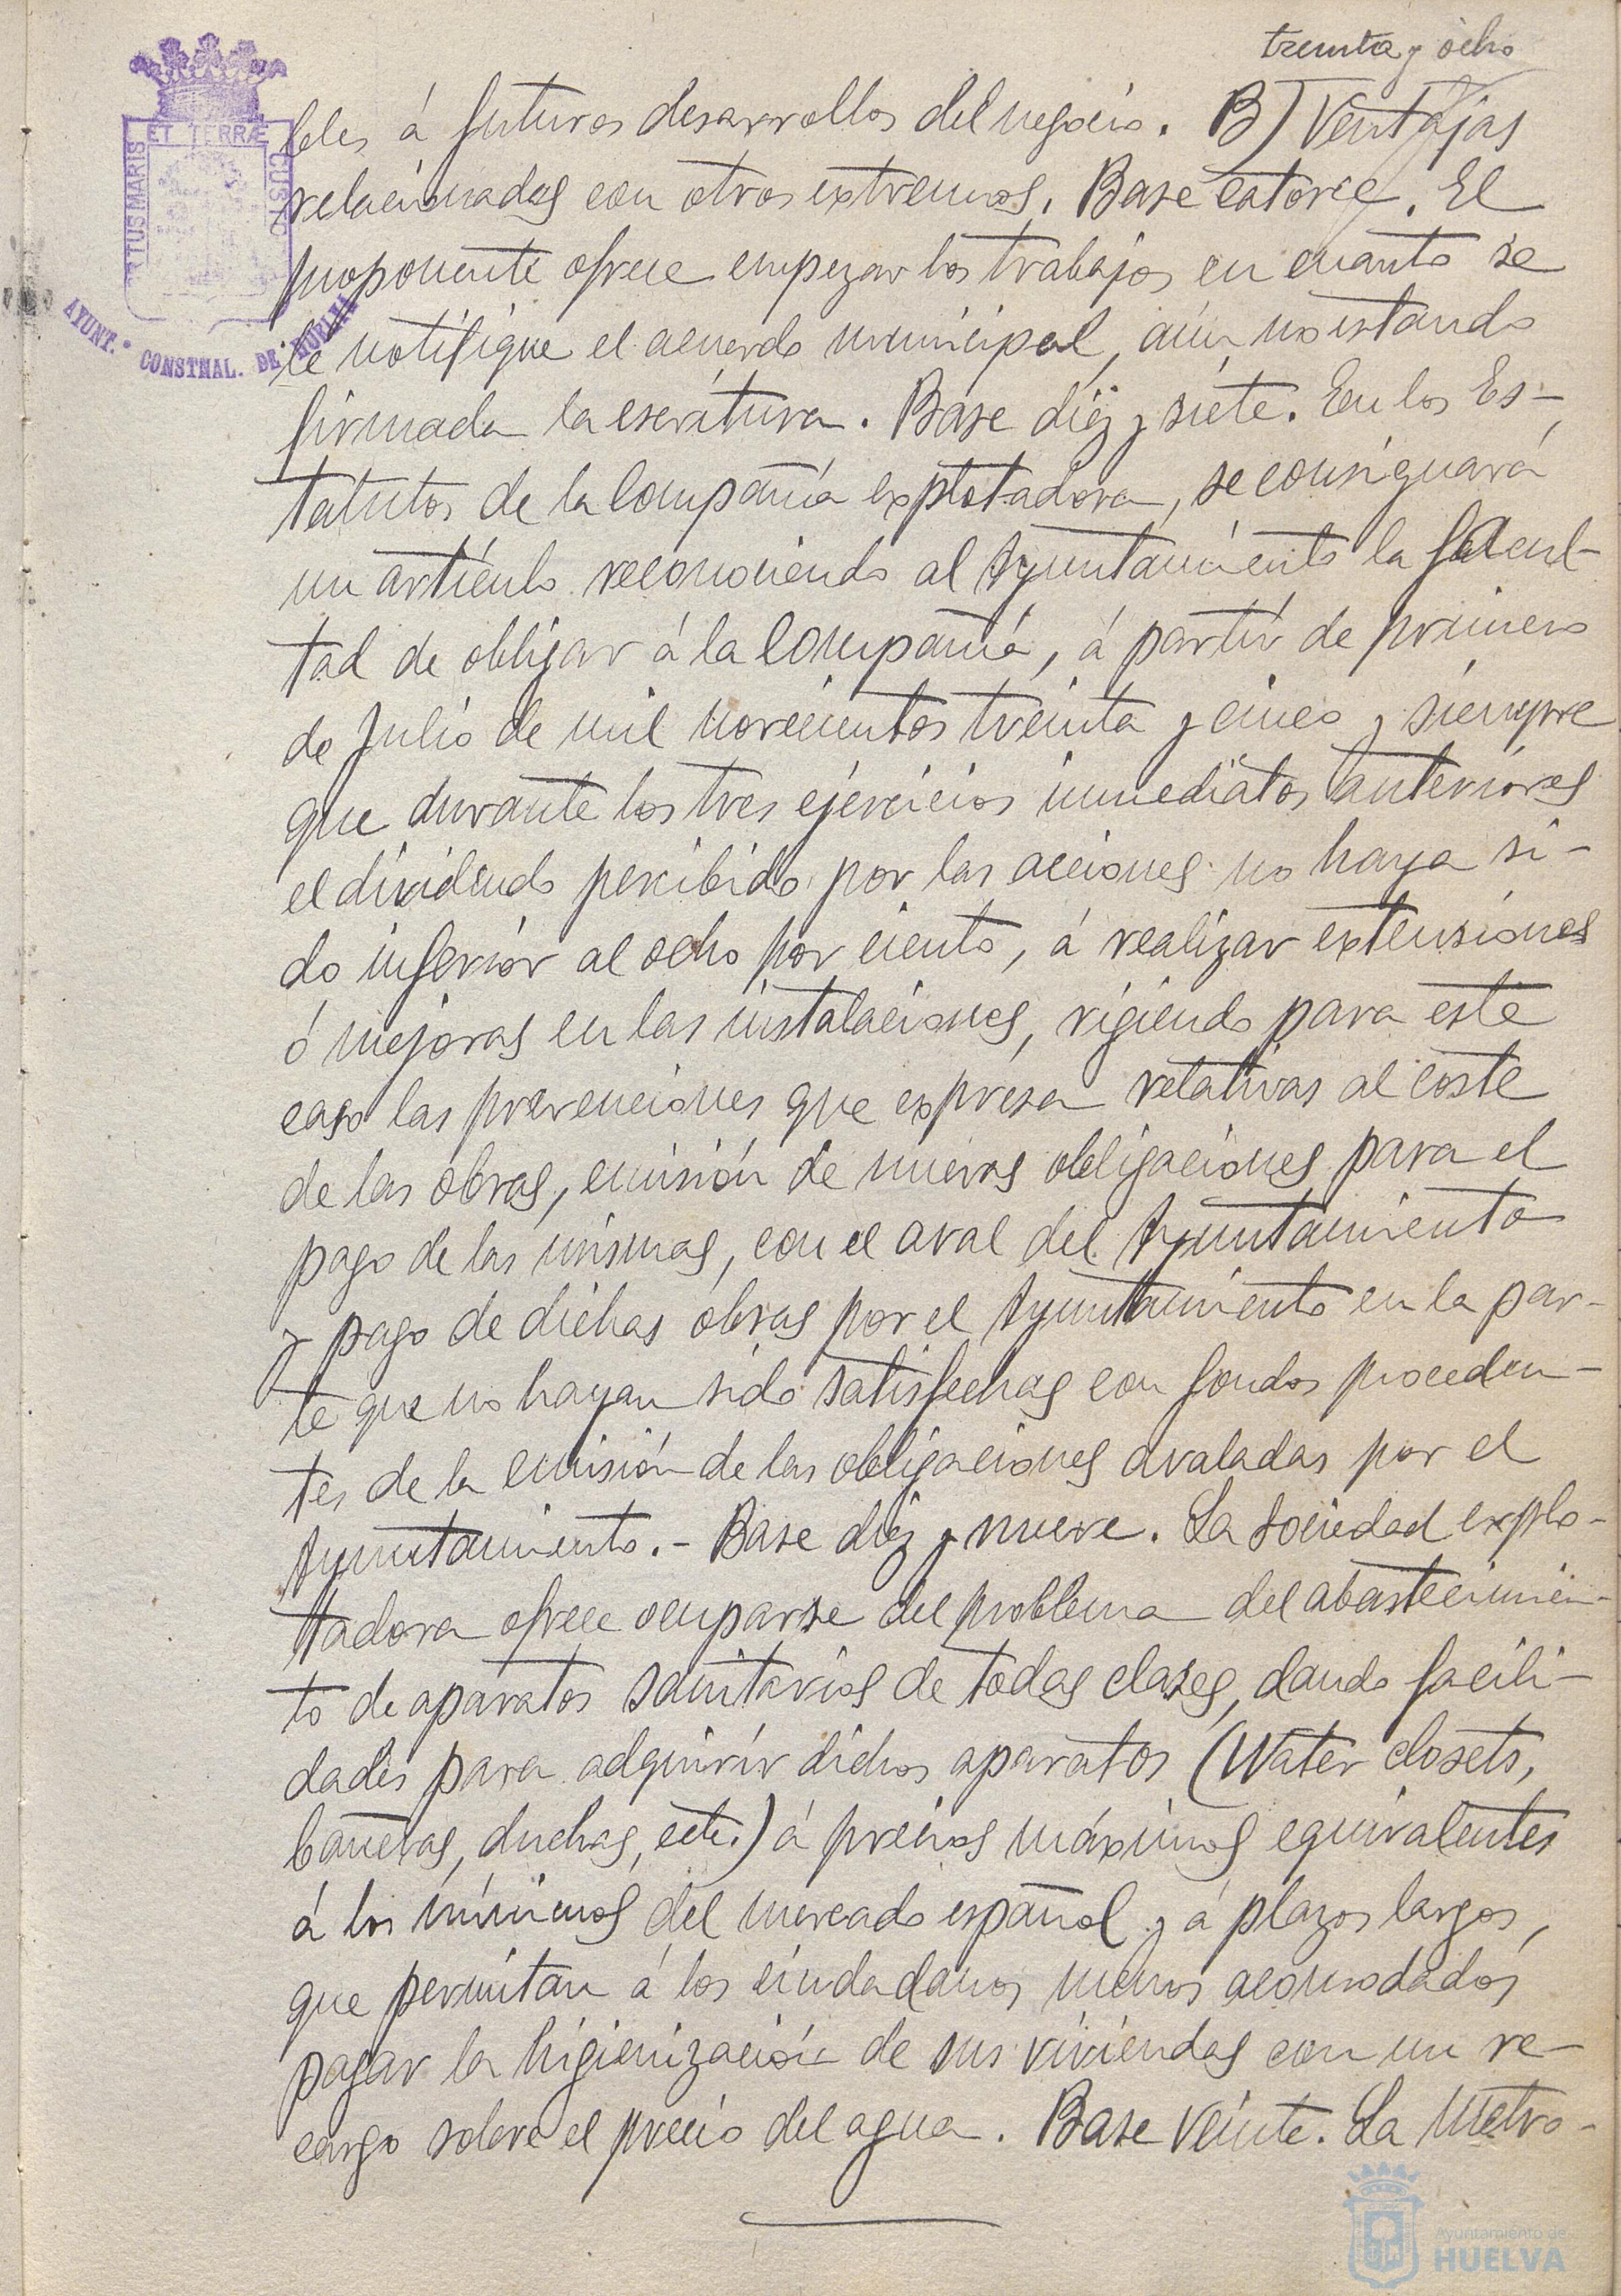 treinta y ocho
bles á futuros desarrollos del negocio. B) Ventajas
relacionadas con otros extremos. Base catorce. El
proponente ofrece empezar los trabajos en cuanto se
le notifique el acuerdo municipal, aún no estando
firmada la escritura. Base diez y siete. En los Es-
tatutos de la Compañía explotadora, se consignará
un artículo reconociendo al Ayuntamiento la facul-
tad de obligar á la Compañía, á partir de primero
de Julio de mil novecientos treinta y cinco y siempre
que durante los tres ejercicios inmediatos anteriores
el dividendo percibido por las acciones no haya si-
do inferior al ocho por ciento, á realizar extensiones
ó mejoras en las instalaciones, rigiendo para este
caso las prevenciones que expresa relativas al coste
de las obras, emisión de nuevas obligaciones para el
pago de las mismas, con el aval del Ayuntamiento
y pago de dichas obras por el Ayuntamiento en la par-
te que no hayan sido satisfechas con fondos proceden-
tes de la emisión de las obligaciones avaladas por el
Ayuntamiento.- Base diez y nueve. La Sociedad explo-
tadora ofrece ocuparse del problema del abastecimien-
to de aparatos sanitarios de todas clases, dando facili-
dades para adquirir dichos aparatos (Water closets,
bañeras, duchas, ectr.) á precios máximos equivalentes
á los mínimos del mercado español y á plazos largos,
que permitan á los ciudadanos menos acomodados
pagar la higienización de sus viviendas con un re-
cargo sobre el precio del agua. Base veinte. La Metro-
RTUS MARIS ET TERRÆ CUSTO
AYUNT. CONSTNAL. DE HUELVA
Ayuntamiento de
HUELVA